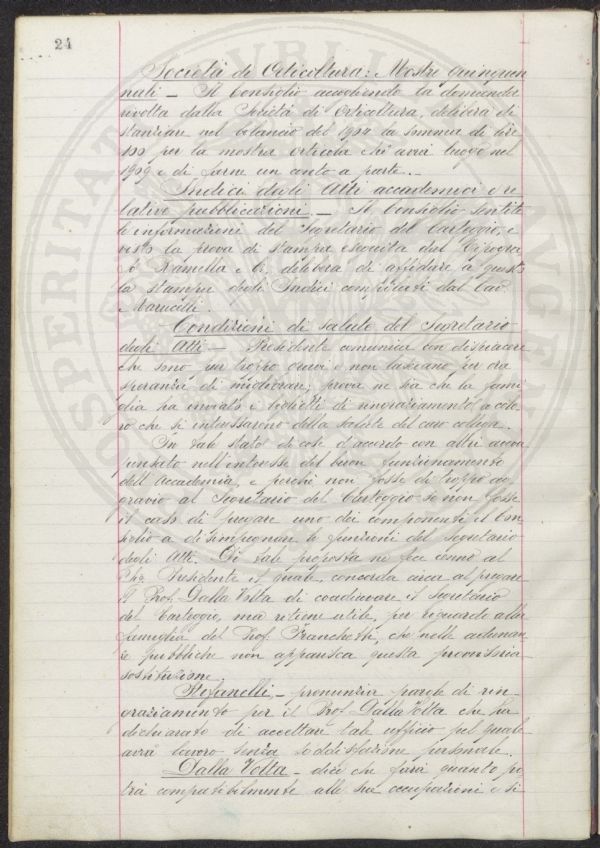 24
Società di Orticoltura: Mostre quinquen
nali – Il Consiglio accogliendo la domanda
rivolta dalla Società di Orticultura, delibera di
stanziare nel bilancio del 1904 la somma di lire
100 per la mostra orticola che avrà luogo nel
1909 e di farne un conto a parte. –
Indici degli Atti accademici e re
lative pubblicazioni. – Il Consiglio sentite
le informazioni del Segretario del Carteggio, e
vista la prova di stampa eseguita dal Tipogra
fo Ramella e C. delibera di affidare a questo
la stampa degli Indici compilati dal Cav.
Marucelli.
Condizioni di salute del Segretario
degli Atti – Presidente comunica con dispiacere
che sono pur troppo gravi e non lasciano per ora
speranza di migliorare; prova ne sia che la fami
glia ha inviato i biglietti di ringraziamento a colo
ro che si interessarono della salute del caro collega.
In tale stato di cose d'accordo con altri aveva
pensato nell'interesse del buon funzionamento
dell'Accademia, e perchè non fosse di troppo ag
gravio al Segretario del Carteggio se non fosse
il caso di pregare uno dei componenti il Con
siglio a disimpegnare le funzioni del Segretario
degli Atti. Di tale proposta ne fece cenno al
Presidente il quale, concorda circa al pregare
il Prof. Dalla Volta di coadiuvare il Segretario
del Carteggio, ma ritiene utile, per riguardo alla
famiglia del Prof. Franchetti, che nelle adunan
ze pubbliche non apparisca questa provvisoria
sostituzione.
Stefanelli – pronunzia parole di rin
graziamento per il Prof. Dalla Volta che ha
dichiarato di accettare tale ufficio pel quale
avrà lavoro senza soddisfazione personale.
Dalla Volta – dice che farà quanto po
trà compatibilmente alle sue occupazioni e si